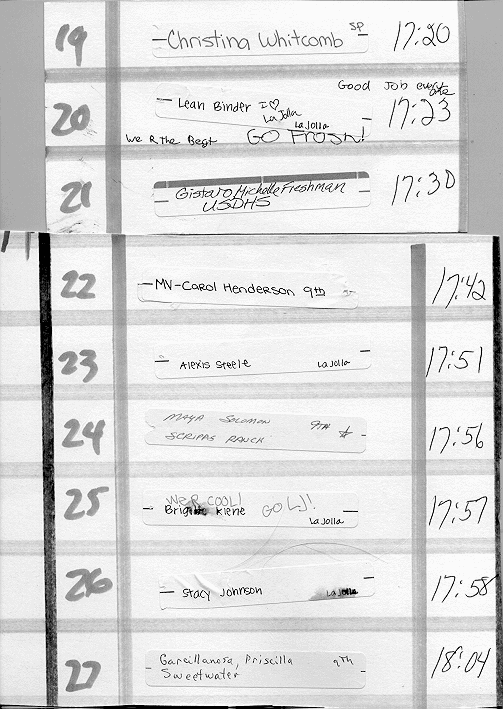 19 Christina Whitcomb SP 17:20
Good Job everyone
20 Leah Binder I ♡ La Jolla 17:23
La Jolla
We R The Best GO Frosh!
21 Gistaro, Michelle Freshman 17:30
USDHS
22 MV-Carol Henderson 9th 17:42
23 Alexis Steele La Jolla 17:51
24 MAYA SOLOMON 9TH 17:56
SCRIPPS RANCH
25 We R COOL! GO LJ! 17:57
Kiene La Jolla
26 Stacy Johnson La Jolla 17:58
27 Garcillanosa, Priscilla 9Th 18:04
Sweetwater